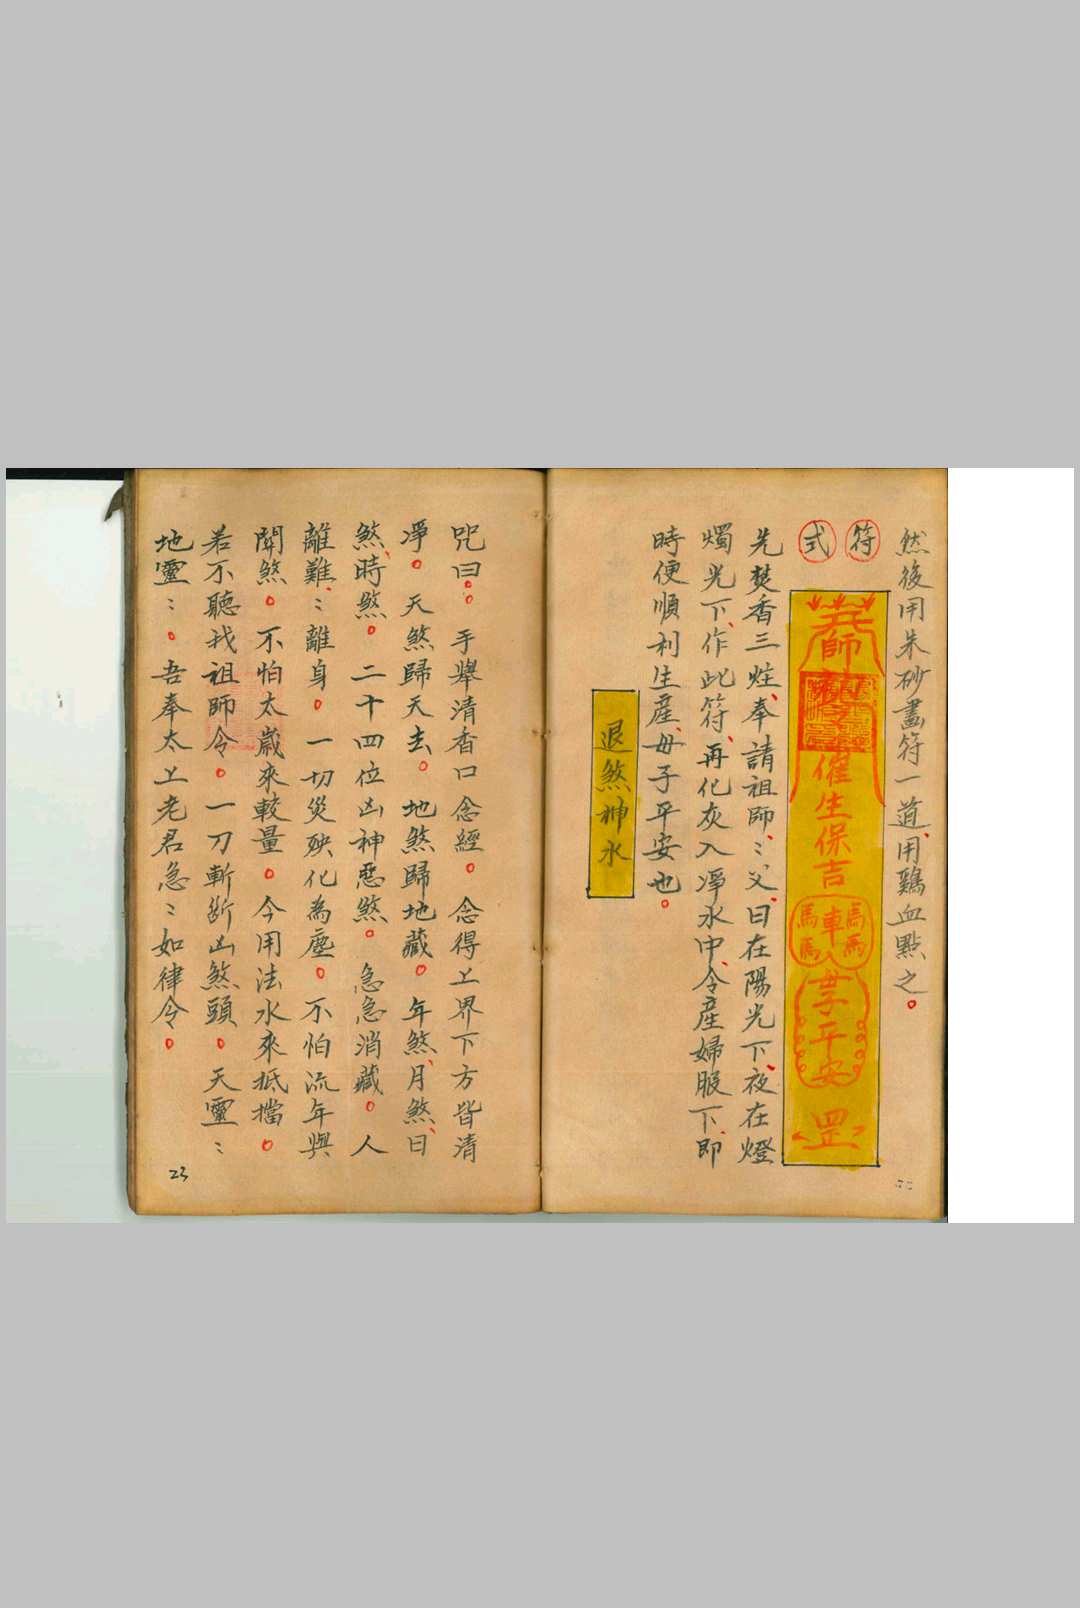 然後用朱砂畫符一道、用鷄血點之。
符
式
師
催生保吉
馬 車 馬
馬 馬
母子平安
罡
先焚香三炷、奉請祖師、〻父、日在陽光下、夜在燈
燭光下、作此符、再化灰入淨水中、令產婦服下、即
時便順利生產、母子平安也。
退煞神水
咒曰。。手舉清香口念經。念得上界下方皆清
淨。天煞歸天去。地煞歸地藏。年煞、月煞、日
煞、時煞。二十四位凶神惡煞。急急消藏。人
離難、〻離身。一切災殃化為塵。不怕流年與
關煞。不怕太歲來較量。今用法水來抵擋。
若不聽我祖師令。一刀斬斷凶煞頭。天靈〻
地靈〻。吾奉太上老君急〻如律令。
23